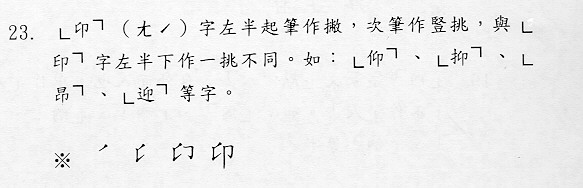 23. └卬┐（ㄤˊ）字左半起筆作撇，次筆作豎挑，與└
印┐字左半下作一挑不同。如：└仰┐、└抑┐、└
昂┐、└迎┐等字。
※ 卬